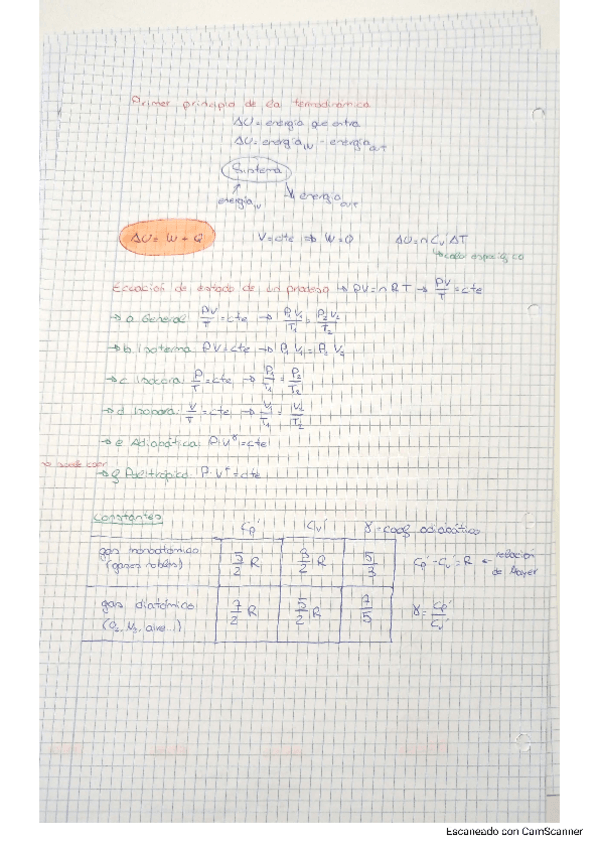 Primer principio de la termodinámica
ΔU = energía que entra
ΔU = energía IN - energía OUT
Sistema
energía IN energía OUT
ΔU = W + Q V = cte ⇒ W = 0 ΔU = n Cv ΔT
↳ calor específico
Ecuación de estado de un proceso ↳ PV = n R T → PV/T = cte
→ a General PV/T = cte → P₁V₁/T₁ = P₂V₂/T₂
→ b Isoterma PV = cte → P₁V₁ = P₂V₂
→ c Isocora: P/T = cte → P₁/T₁ = P₂/T₂
→ d Isobara: V/T = cte → V₁/T₁ = V₂/T₂
→ e Adiabática: P·V^γ = cte
→ f Politrópico P·V^r = cte
Constantes
Cp' Cv' γ = coef adiabático
gas monoatómico (gases nobles) 5/2 R 3/2 R 5/3 Cp' - Cv' = R ← relación de Mayer
gas diatómico (O₂, N₂, aire...) 7/2 R 5/2 R 7/5 γ = Cp'/Cv'
Escaneado con CamScanner